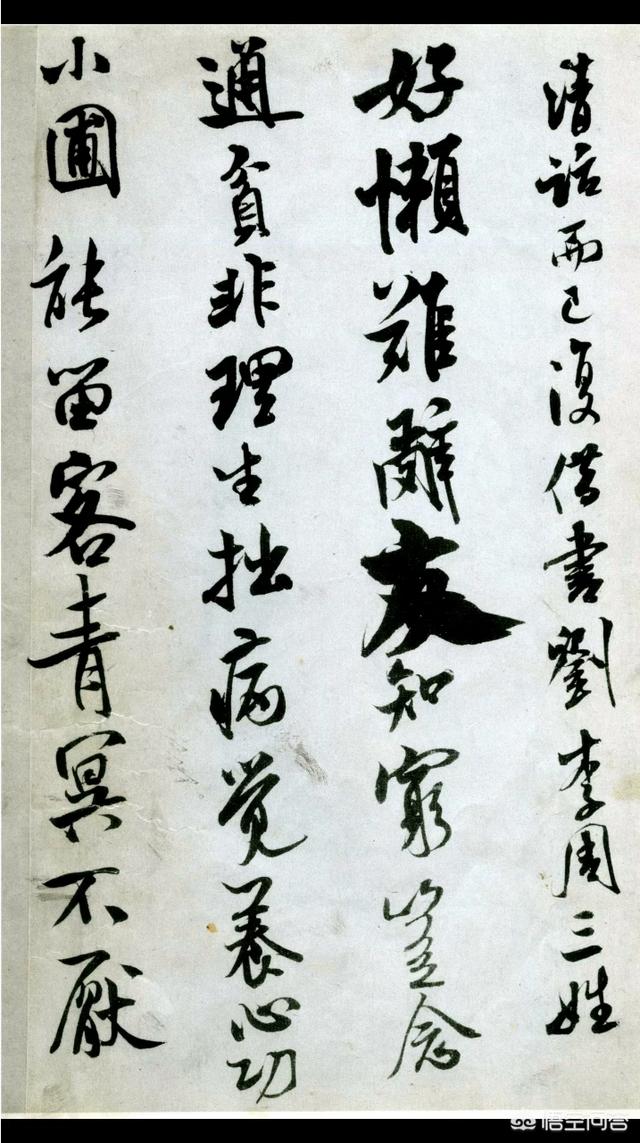 清話而已復借書劉李周三姓
好懶難辭友知窮豈念
通貧非理生拙病覺養心功
小圃能留客青冥不厭
悟空问答